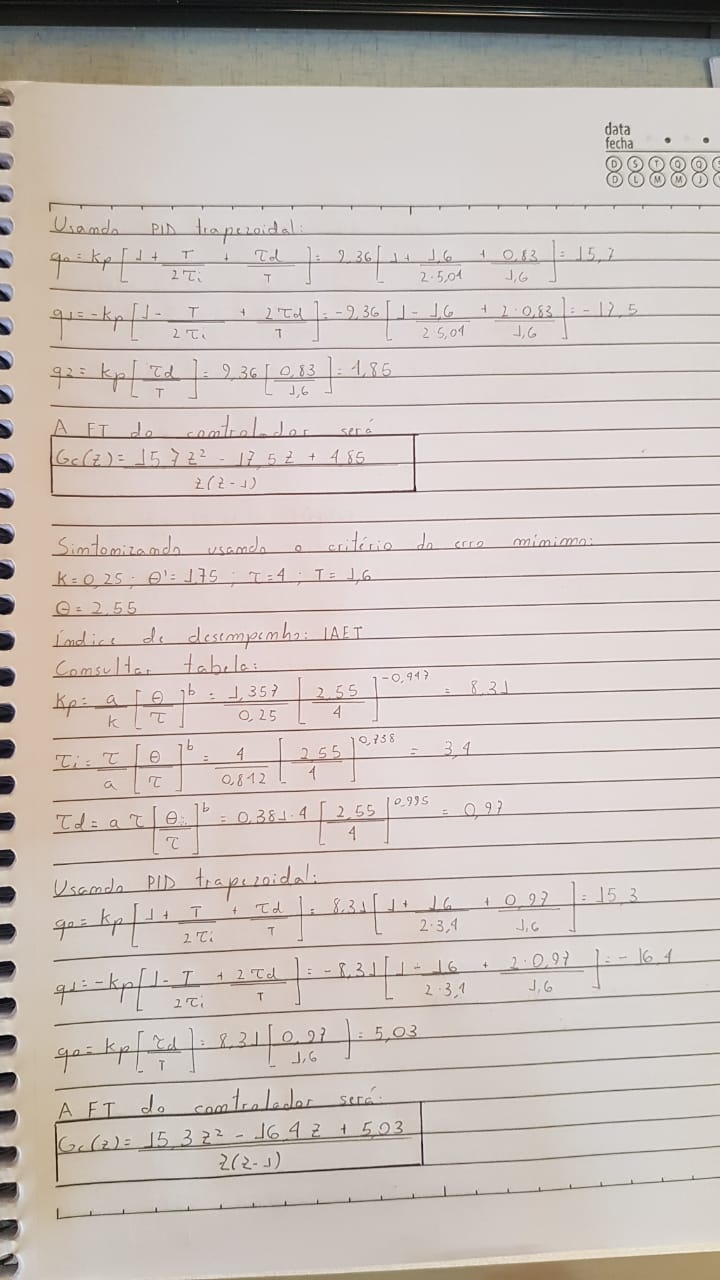 data
fecha
D S T Q Q S
D L M M J V
Usando PID trapezoidal:
q0 = kp [1 + T/2τi + τd/T] = 9,36 [1 + 1,6/2·5,04 + 0,83/1,6] = 15,7
q1 = -kp [1 - T/2τi + 2τd/T] = -9,36 [1 - 1,6/2·5,04 + 2·0,83/1,6] = -17,5
q2 = kp [τd/T] = 9,36 [0,83/1,6] = 4,85
A FT do controlador será
Gc(z) = 15,7z² - 17,5z + 4,85 / z(z-1)
Sintonizando usando o critério do erro mínimo:
k = 0,25 ; θ' = 1,75 ; τ = 4 ; T = 1,6
θ = 2,55
Índice de desempenho: IAET
Consultar tabela:
kp = a/k [θ/τ]^b = 1,357/0,25 [2,55/4]^-0,947 = 8,31
τi = τ/a [θ/τ]^b = 4/0,842 [2,55/4]^0,738 = 3,4
τd = a τ [θ/τ]^b = 0,381·4 [2,55/4]^0,995 = 0,97
Usando PID trapezoidal:
q0 = kp [1 + T/2τi + τd/T] = 8,31 [1 + 1,6/2·3,4 + 0,97/1,6] = 15,3
q1 = -kp [1 - T/2τi + 2τd/T] = -8,31 [1 - 1,6/2·3,4 + 2·0,97/1,6] = -16,4
q0 = kp [τd/T] = 8,31 [0,97/1,6] = 5,03
A FT do controlador será:
Gc(z) = 15,3z² - 16,4z + 5,03 / z(z-1)